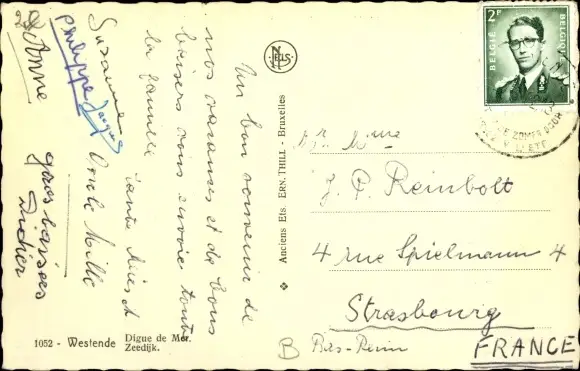 Un bon souvenir de
nos vacances et de bons
baisers vous envoie toute
la famille
Tante
Oncle Willy
Suzanne
Jacques
Philippe
Anne
gros baisers
Didier
NELS
Anciens Ets ERN. THILL - Bruxelles
1052 - Westende Digue de Mer.
Zeedijk.
2F
BELGIE
BELGIQUE
J. P. Reinbolt
4 rue Spielmann 4
Strasbourg
Bas-Rhin
FRANCE